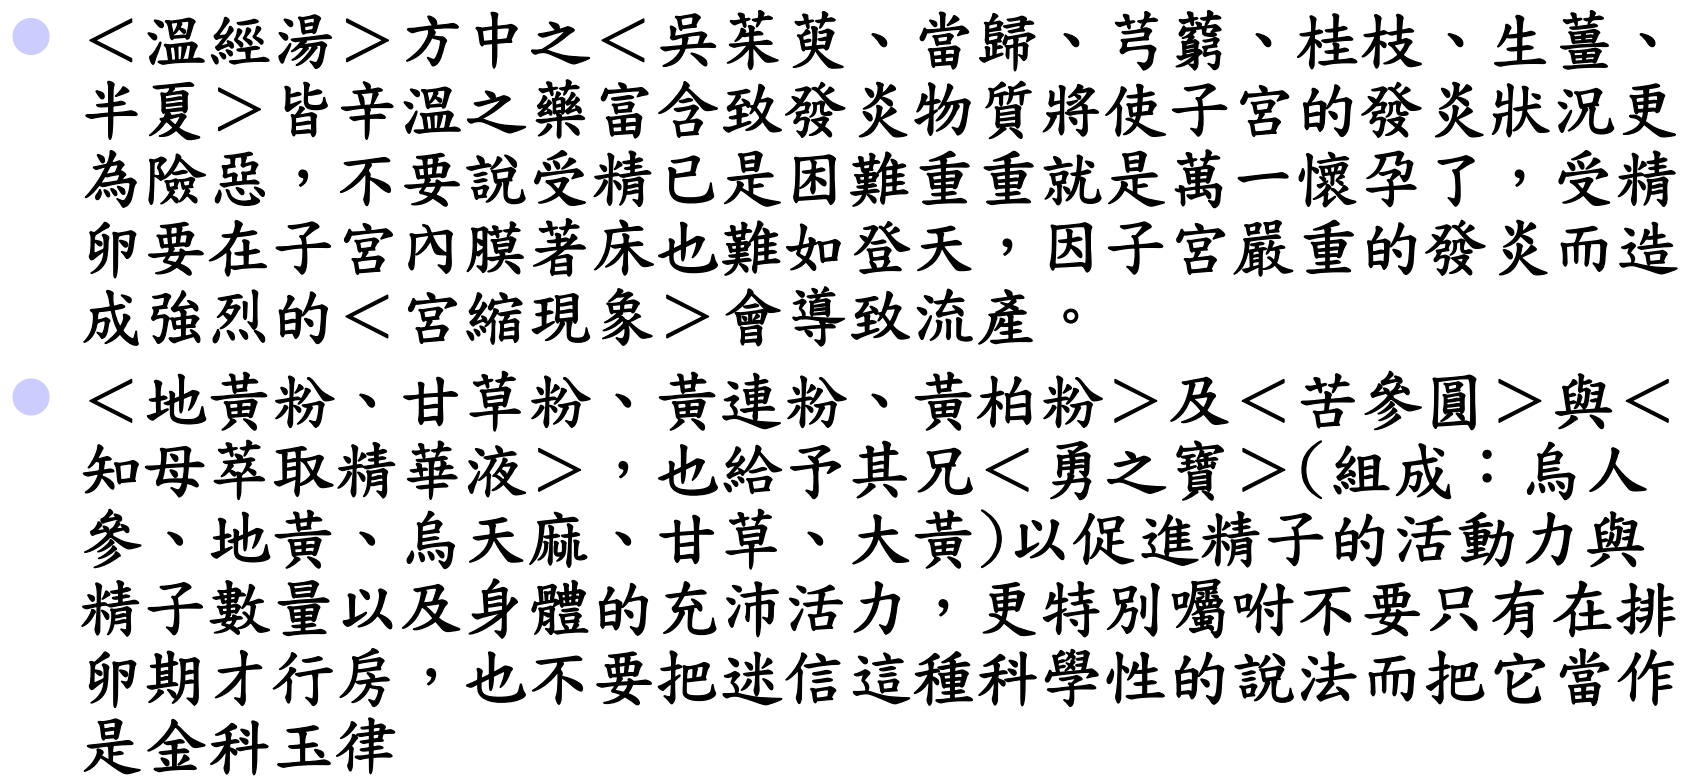 ＜溫經湯＞方中之＜吳茱萸、當歸、芎藭、桂枝、生薑、
半夏＞皆辛溫之藥富含致發炎物質將使子宮的發炎狀況更
為險惡，不要說受精已是困難重重就是萬一懷孕了，受精
卵要在子宮內膜著床也難如登天，因子宮嚴重的發炎而造
成強烈的＜宮縮現象＞會導致流產。
＜地黃粉、甘草粉、黃連粉、黃柏粉＞及＜苦參圓＞與＜
知母萃取精華液＞，也給予其兄＜勇之寶＞(組成：烏人
參、地黃、烏天麻、甘草、大黃)以促進精子的活動力與
精子數量以及身體的充沛活力，更特別囑咐不要只有在排
卵期才行房，也不要把迷信這種科學性的說法而把它當作
是金科玉律